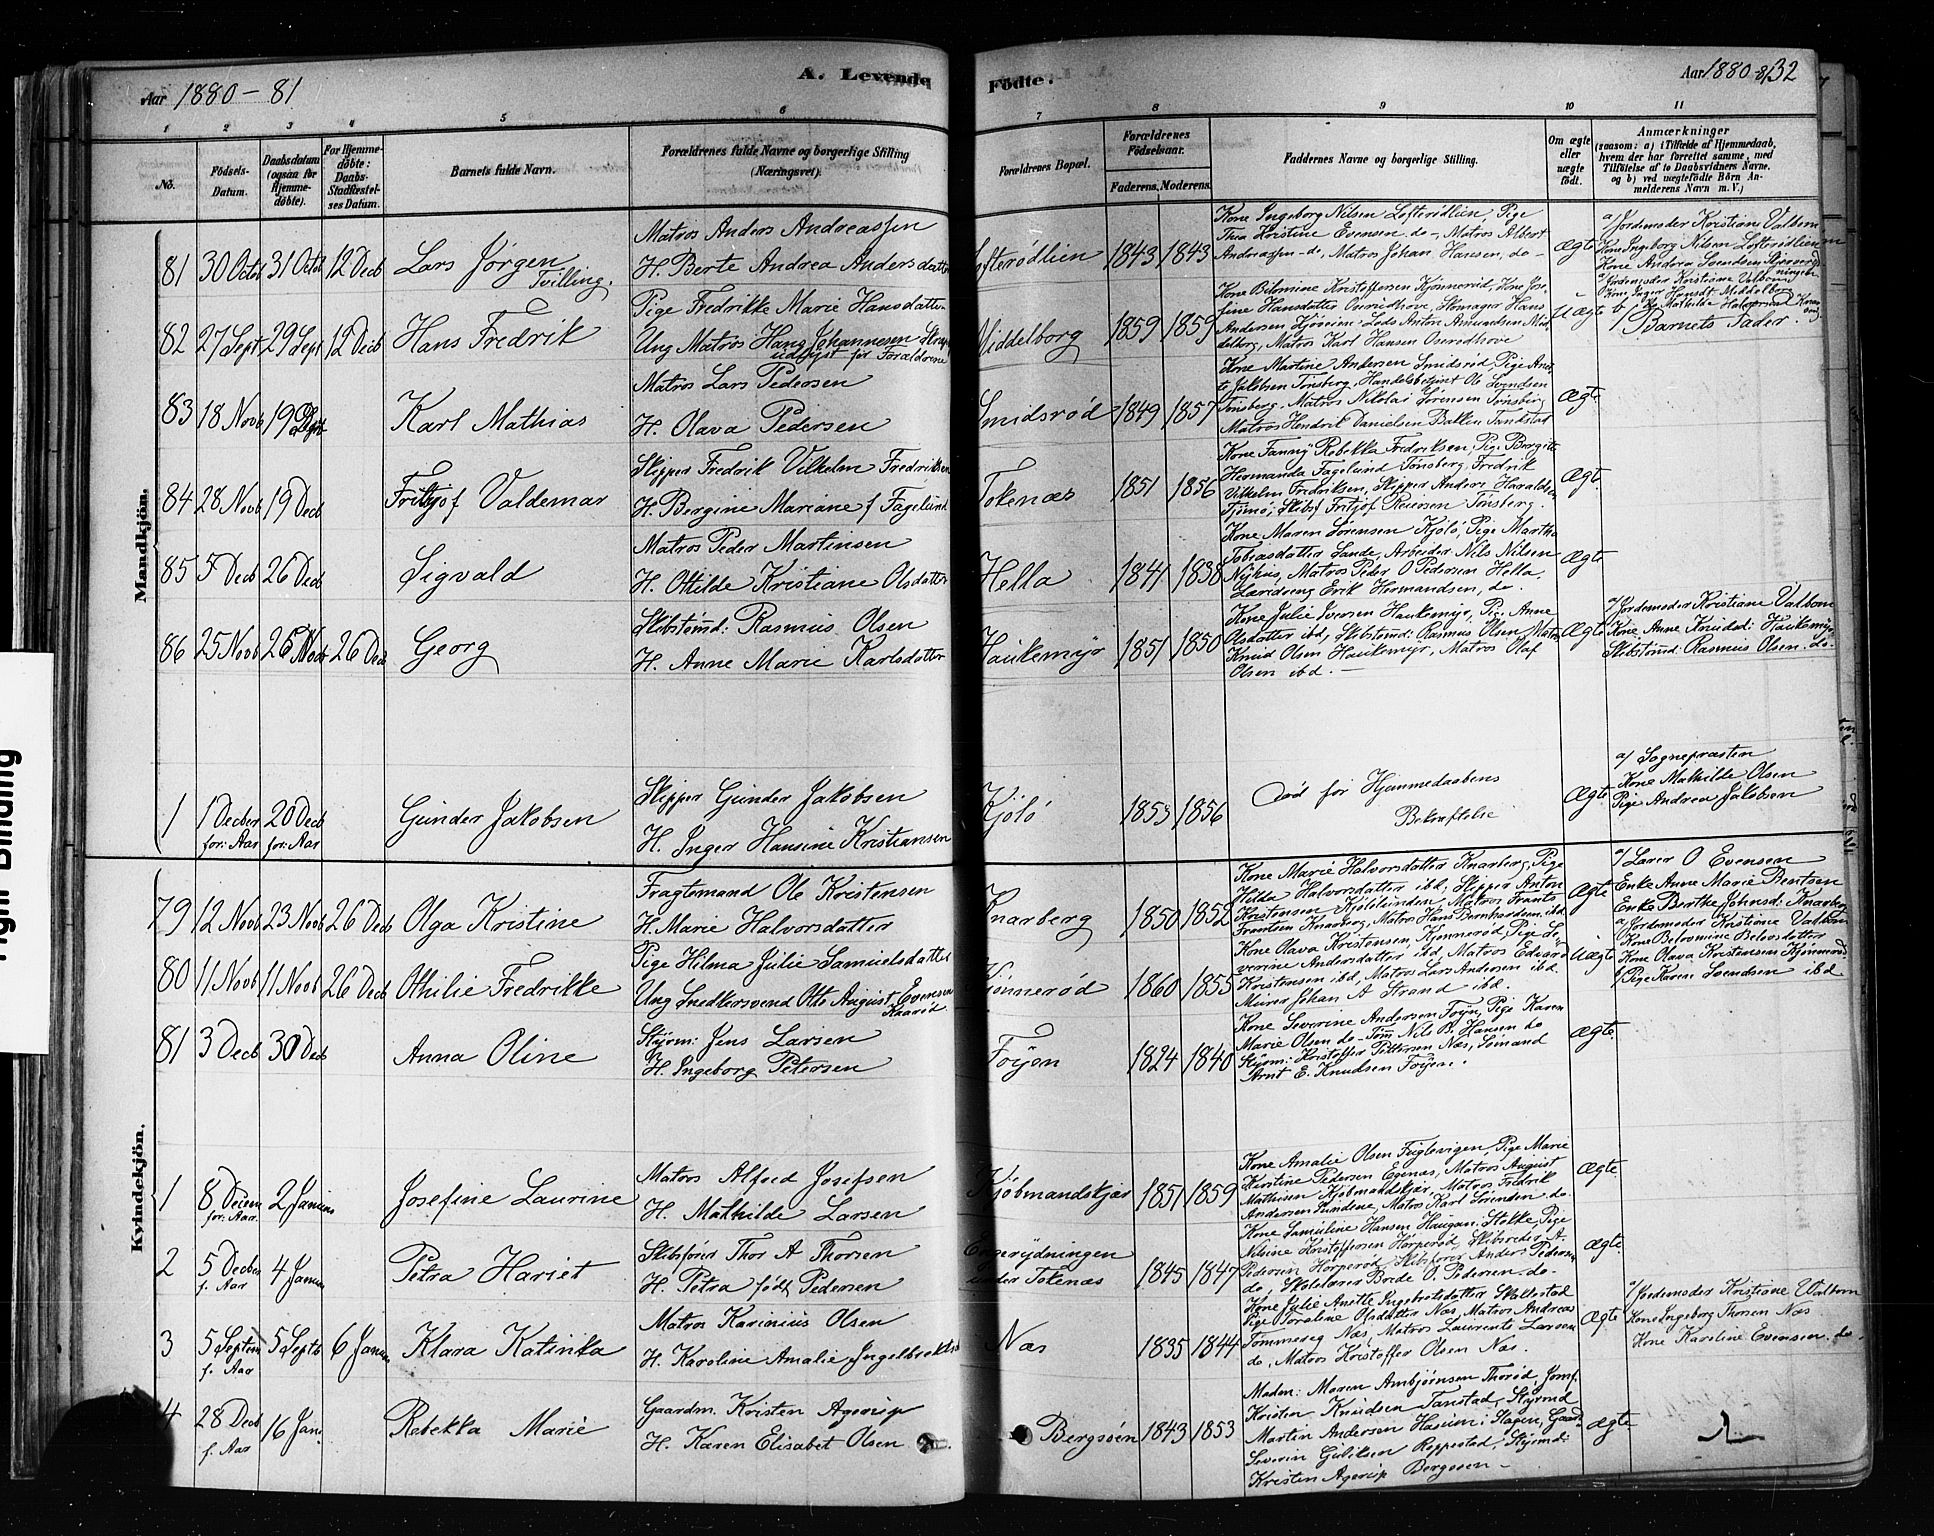 Aar 1880-81
A. Levende
Fødte.
Aar 1880-81
32
1 2 3 4 5 6 7 8 9 10 11
No.
Födsels-
Datum.
Daabsdatum
(ogsaa for
Hjemme-
döbte).
For Hjemme-
döbte:
Daabs-
Stadfæstel-
ses Datum.
Barnets fulde Navn.
Forældrenes fulde Navne og borgerlige Stilling
(Næringsvei).
Forældrenes Bopæl.
Forældrenes
Födselsaar.
Faderens. Moderens.
Faddernes Navne og borgerlige Stilling.
Om ægte
eller
uægte
födt.
Anmærkninger
(saasom: a) i Tilfælde af Hjemmedaab,
hvem der har forrettet samme, med
Tilföielse af to Daabsvidners Navne,
og b) ved uægtefödte Börn An-
melderens Navn m. V.)
Mandkjön.
81 30 Octob 31 Octob 12 Decb
Lars Jørgen
Tvilling.
Matros Anders Andreassen
H. Berte Andrea Andersdatter
Lofterødlien 1843 1843
Kone Ingeborg Nilsen Lofterødlien, Pige
Thea Kristine Evensen do-, Matros Albert
Andreassen do, Matros Johan Hansen, do-
Ægte
a/ Jordemoder Kristiane Valbom
Kone Ingeborg Nilsen Lofterødlien
Kone Andrea Svendsen
82 27 Sept 29 Sept 12 Decb
Hans Fredrik
Pige Fredrikke Marie Hansdatter
Ung Matros Hans Johannesen
udlyst for Forældrene
Middelborg 1859 1859
Kone Bilmine Kristoffersen Kjønnerød, Kone Jose-
fine Hansdatter Oserødhove, Skomager Hans
Andersen Lods Anton Amundsen Mid-
delborg, Matros Karl Hansen Oserødhove
Uægte
a/ Jordemoder Kristiane Valbom
Kone Inger Middelborg
b/ Pige Mathilde
Barnets Fader.
83 18 Novb 19 Decb
Karl Mathias
Matros Lars Pedersen
H. Olava Pedersen
Smidsrød 1849 1857
Kone Martine Andersen Smidsrød, Pige Anet-
te Jakobsen Tønsberg, Handelsbetjent Ole Svendsen
Tønsberg, Matros Nikolai Sørensen Tønsberg
Matros Hendrik Danielsen Bakken Tandstad
Ægte
84 28 Novb 19 Decb
Fritjof Valdemar
Skipper Fredrik Vilhelm Fredriksen
H. Bergine Mariane f Fagelund
Tokenæs 1851 1856
Kone Fanny Rebekka Fredriksen, Pige Birgite
Hermanda Fagelund Tønsberg, Fredrik
Vilhelm Fredriksen, Skipper Anders Haraldsen
Tjømø, Skibsf Fritjof Reiersen Tønsberg.
Ægte
85 5 Decb 26 Decb
Sigvald
Matros Peder Martinsen
H. Othilde Kristiane Olsdatter
Hella 1841 1838
Kone Maren Sørensen Kjøló, Pige Martha
Tobiasdatter Sande, Arbeider Nils Nilsen
Nyhus, Matros Peder O Pedersen Hella,
Læredreng Erik Hermandsen, do.
Ægte
86 25 Novb 26 Novb 26 Decb
Georg
Skibstømd: Rasmus Olsen
H. Anne Marie Karlsdatter
Haukemyr 1851 1850
Kone Julie Iversen Haukemyr, Pige Anne
Olsdatter ibd, Skibstømd: Rasmus Olsen, Matros
Knud Olsen Haukemyr, Matros Olaf
Olsen ibd.
Ægte
a/ Jordemoder Kristiane Valbom
Kone Anne Knudsd: Haukemyr
Skibstømd: Rasmus Olsen do.
1 1 Decber 20 Decb
for: Aar for: Aar
Gunder Jakobsen
Skipper Gunder Jakobsen
H. Inger Hansine Kristiansen
Kjóló 1853 1856
Død før Hjemmedaabens
Bekræftelse
Ægte
a/ Sognepræsten
Kone Mathilde Olsen
Pige Andrea Jakobsen
Kvindekjön.
79 12 Novb 23 Novb 26 Decb
Olga Kristine
Fragtemand Ole Kristensen
H. Marie Halvorsdatter
Knarberg 1850 1852
Kone Marie Halvorsdatter Knarberg, Pige
Hilda Halvorsdatter ibd, Skipper Anton
Kristensen Matros Frants
Frantsen Knarberg, Matros Hans Bernhardsen ibd.
Ægte
a/ Lærer O Evensen
Enke Anne Marie Bentsen
Enke Berthe Johnsd: Knarberg
80 11 Novb 11 Novb 26 Decb
Othilie Fredrikke
Pige Hilma Julie Samuelsdatter
Ung Snedkersvend Otto August Evensen
Kaarød
Kjønnerød 1860 1855
Kone Olava Kristensen, Kjønnerød, Pige Se-
verine Andersdatter ibd, Matros Edvard
Kristensen ibd, Matros Lars Andersen ibd.
Murer Johan A Strand ibd.
Uægte
a/ Jordemoder Kristiane Valbom
Kone
Kone Olava Kristensen Kjønnerød
b/ Pige Karen Svendsen ibd
81 3 Decb 30 Decb
Anna Oline
Styrm: Jens Larsen
H. Ingeborg Petersen
Föyen 1824 1840
Kone Severine Andersen Föyn, Pige Karen
Marie Olsen do- Nils B. Hansen do
Styrm: Kristoffer Pettersen Næs, Sømand
Arnt E. Knudsen Föyen.
Ægte
1 8 Decem 2 Januar
for: Aar.
Josefine Laurine
Matros Alfred Josefsen
H. Mathilde Larsen
Kjöbmandskjær 1851 1859
Kone Amalie Olsen Fuglevigen, Pige Marie
Kirstine Pedersen Egenæs, Matros August
Mathisen Kjöbmandskjær, Matros Fredrik
Andersen Sundene, Matros Karl Sørensen do.
Ægte
2 5 Decber 4 Januar
f. Aar
Petra Hariet
Skibsfører Thor A Thorsen
H. Petra født Pedersen
Engerydningen
under Tokenæs 1845 1847
Kone Samuline Hansen Haugan: Stokke, Pige
Nilsine Kristoffersen Horperød, Skibsreder A.
Pedersen Horperød, Skibsfører Anders Pedersen
do, Skolelærer Brede O. Pedersen do-
Ægte
3 5 Septem 5 Septb 6 Januar
f. Aar
Klara Katinka
Matros Karinius Olsen
H. Karoline Amalie Ingelbrektsd
Næs 1835 1844
Kone Julie Anette Ingebretsdatter Skallestad
Pige Toraline Olsdatter Næs, Matros Andreas
Tommeseg Næs, Matros Laurents Larsen
do, Matros Kristoffer Olsen Næs.
Ægte
a/ Jordemoder Kristiane Valbom
Kone Ingeborg Thorsen Næs
Kone Karoline Evensen do.
4 28 Decb 16 Jan:
f. Aar
Rebekka Marie
Gaardm. Kristen Agerup
H. Karen Elisabet Olsen
Bergsøen 1843 1853
Madm: Maren Ambjørnsen Thorød, Jomf.
Kristen Knudsen Tanstad, Styrmd
Martin Andersen Hasum: Slagen, Gaard-
Severin Guliksen Roppestad, Styrmd:
Kristen Agerup Bergsøen
Ægte
Tight Binding